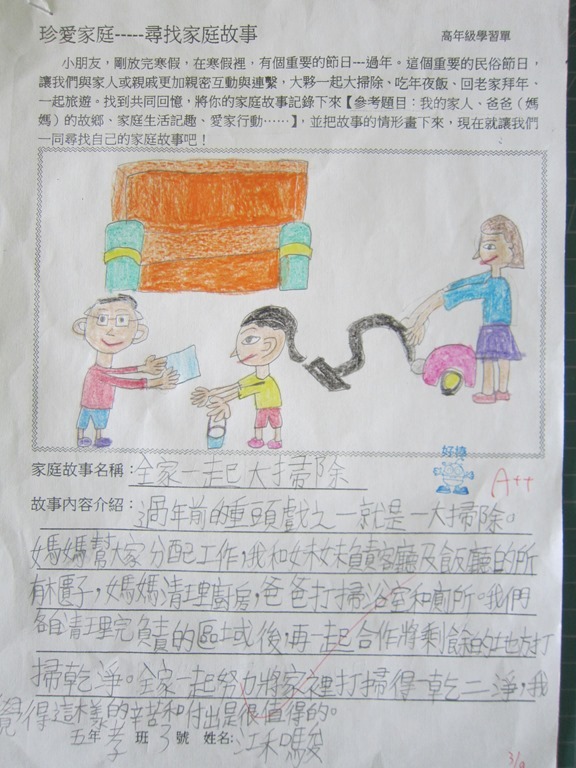 珍愛家庭-----尋找家庭故事
高年級學習單
小朋友，剛放完寒假，在寒假裡，有個重要的節日---過年。這個重要的民俗節日，
讓我們與家人或親戚更加親密互動與連繫，大夥一起大掃除、吃年夜飯、回老家拜年、
一起旅遊。找到共同回憶，將你的家庭故事記錄下來【參考題目：我的家人、爸爸（媽
媽）的故鄉、家庭生活記趣、愛家行動……】，並把故事的情形畫下來，現在就讓我們
一同尋找自己的家庭故事吧！
家庭故事名稱：全家一起大掃除
好棒
A++
故事內容介紹：過年前的重頭戲之一就是一大掃除。
媽媽幫大家分配工作，我和妹妹負責客廳及飯廳的所
有櫃子，媽媽清理廚房，爸爸打掃浴室和廁所。我們
各自清理完負責的區域後，再一起合作將剩餘的地方打
掃乾淨。全家一起努力將家裡打掃得一乾二淨，我
覺得這樣的辛苦和付出是很值得的。
五年孝班3號 姓名：江禾